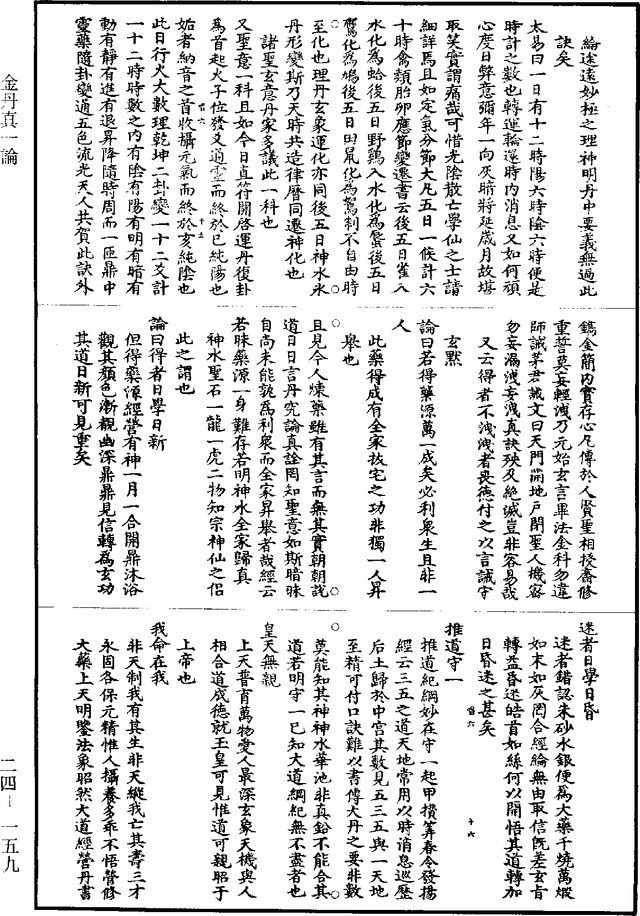 綸遠遠妙極之理神明丹中要義無過此
訣矣
太易曰一日有十二時陽六時陰六時便是
時計之數也轉運輪還時內消息又如何頑
心度日弊意彌年一向灰暗將延歲月故堪
取笑實謂痛哉可惜光陰散亡學仙之士請
細詳焉且如定氣分節大凡五日一候計六
十時禽類胎卵應節變遷書云後五日雀入
水化為蛤後五日野鷄入水化為蜃後五日
鷹化為鳩後五日田鼠化為鴽制不自由時
至化也理丹玄象運化亦同後五日神水永
丹形變斯乃天時共造律曆同遷神化也
諸聖玄意丹家多議此一科也
又聖意一科且如今日直符開啓運丹復卦
為首起火子位發爻逍靈而終於巳純陽也
姤者納音之首收攝元氣而終於亥純陰也
此日行火大數理乾坤二卦變一十二爻計
一十二時時數之內有陰有陽有明有暗有
動有靜有進有退昇降隨時周而一匝鼎中
靈藥隨卦變通五色流光天人共賀此訣外
鐫金簡內實存心凡傳於人賢聖相授齋修
重誓莫妄輕洩乃元始玄言畢法金科勿違
師誡茅君誡文曰天門開地戶閉聖人機密
勿妄漏洩妄洩真訣殃及絶滅豈非容易哉
又云得者不洩洩者喪德付之以言誡守
玄默
論曰若得藥源萬一成矣必利衆生且非一
人
此藥得成有全家拔宅之功非獨一人昇
舉也
且見今人煉藥雖有其言而無其實朝朝說
道日日言丹究論真詮罔知聖意如斯暗昧
自尚未能就為利衆而全家昇舉者哉經云
若昧藥源一身難存若明神水全家歸真
神水聖石一龍一虎二物知宗神仙之侶
此之謂也
論曰得者日學日新
但得藥源經營有神一月一合開鼎沐浴
觀其顏色漸觀幽深鼎鼎見信轉為玄功
其道日新可見重矣
迷者日學日昏
迷者錯認朱砂水銀便為大藥千燒萬煅
如末如灰罔合經論無由取信旣差玄肯
轉益昏迷皓首如絲何以開悟其道轉加
日昏迷之甚矣
推道守一
推道紀綱妙在守一起甲攢筭春令發揚
經云三五之道天地常用以時消息巡歷
后土歸於中宮其數見五三五與一天地
至精可付口訣難以書傳大丹之要非數
莫能知其神神水華池非真鉛不能合其
道若明守一已知大道綱紀無不盡者也
皇天無親
上天普育萬物愛人最深玄象天機與人
相合道成德就玉皇可見惟道可親昭于
上帝也
我命在我
非天制我有其生非天縱我亡其壽三才
永固各保元精惟人攝養多乖不悟督修
大藥上天明鑒法象昭然大道經營丹書
金丹真一論
二四—一五九